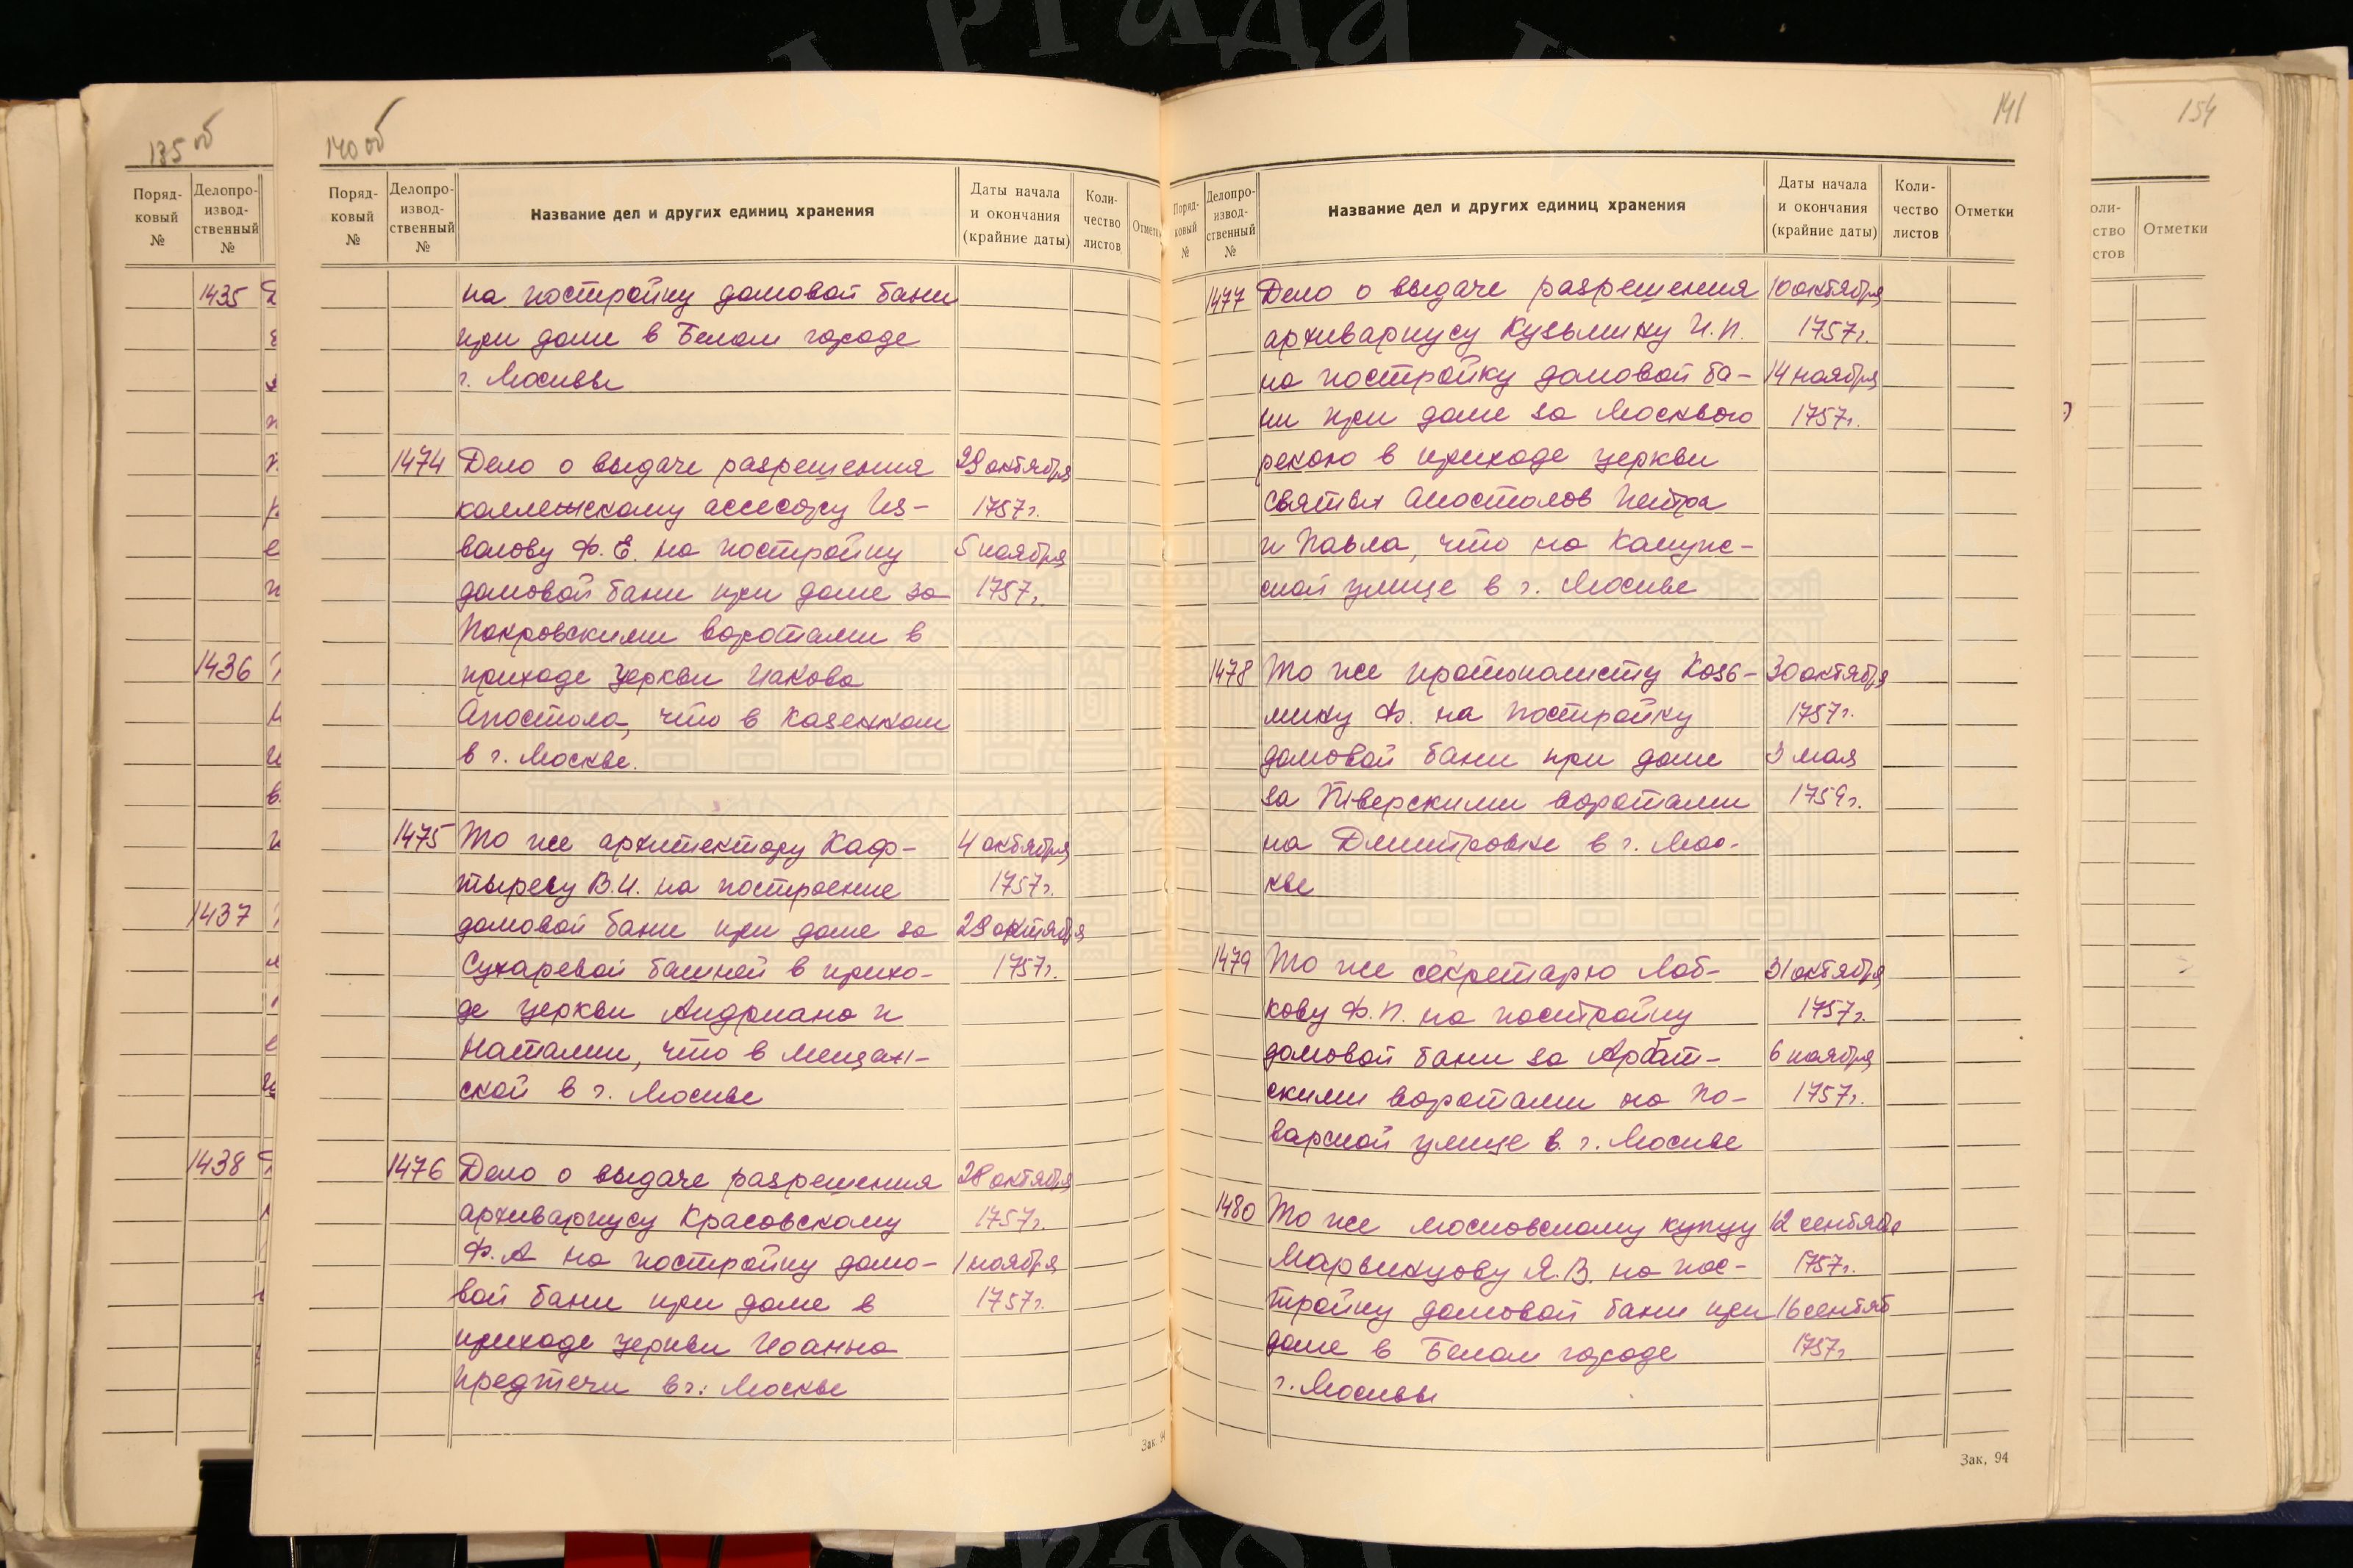 135 об
Поряд-
ковый
№
Делопро-
извод-
ственный
№
1435
1436
1437
1438
140 об
Поряд-
ковый
№
Делопро-
извод-
ственный
№
Название дел и других единиц хранения
Даты начала
и окончания
(крайние даты)
Коли-
чество
листов
на постройку домовой бани
при доме в Белом городе
г. Москвы
1474 Дело о выдаче разрешения 29 октября
коллежскому ассесору Из- 1757 г.
валову Ф. Е. на постройку 5 ноября
домовой бани при доме за 1757 г.
Покровскими воротами в
приходе церкви Иакова
Апостола, что в Казенном
в г. Москве.
1475 То же архитектору Каф- 4 октября
тыреву В. И. на построение 1757 г.
домовой бани при доме за 29 октября
Сухаревой башней в прихо- 1757 г.
де церкви Андриана и
Наталии, что в Мещан-
ской в г. Москве
1476 Дело о выдаче разрешения 28 октября
архивариусу Красовскому 1757 г.
Ф. А на постройку домо- 1 ноября
вой бани при доме в 1757 г.
приходе церкви Иоанна
Предтечи в г. Москве
Зак.
141
Поряд-
ковый
№
Делопро-
извод-
ственный
№
Название дел и других единиц хранения
Даты начала
и окончания
(крайние даты)
Коли-
чество
листов
Отметки
1477 Дело о выдаче разрешения 10 октября
архивариусу Кузьмину И. П. 1757 г.
на постройку домовой ба- 14 ноября
ни при доме за Москвою 1757 г.
рекою в приходе церкви
святых апостолов Петра
и Павла, что на Калуж-
ской улице в г. Москве
1478 То же протоколисту Козь- 30 октября
мину Ф. на постройку 1757 г.
домовой бани при доме 3 мая
за Тверскими воротами 1759 г.
на Дмитровке в г. Мос-
кве
1479 То же секретарю Лоб- 31 октября
кову Ф. П. на постройку 1757 г.
домовой бани за Арбат- 6 ноября
скими воротами на По- 1757 г.
варской улице в. г. Москве
1480 То же московскому купцу 12 сентябр
Марьинцову Я. В. на пос- 1757 г.
тройку домовой бани при 16 сентяб
доме в Белом городе 1757 г
г. Москвы
Зак, 94
154
Отметки